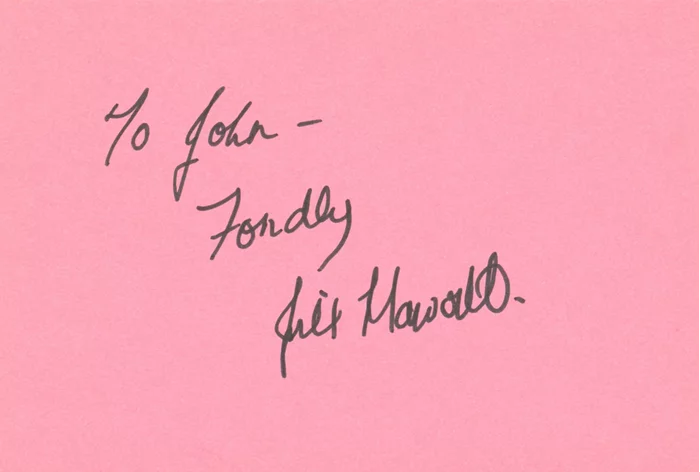 To John -
Fondly
Jill Haworth.